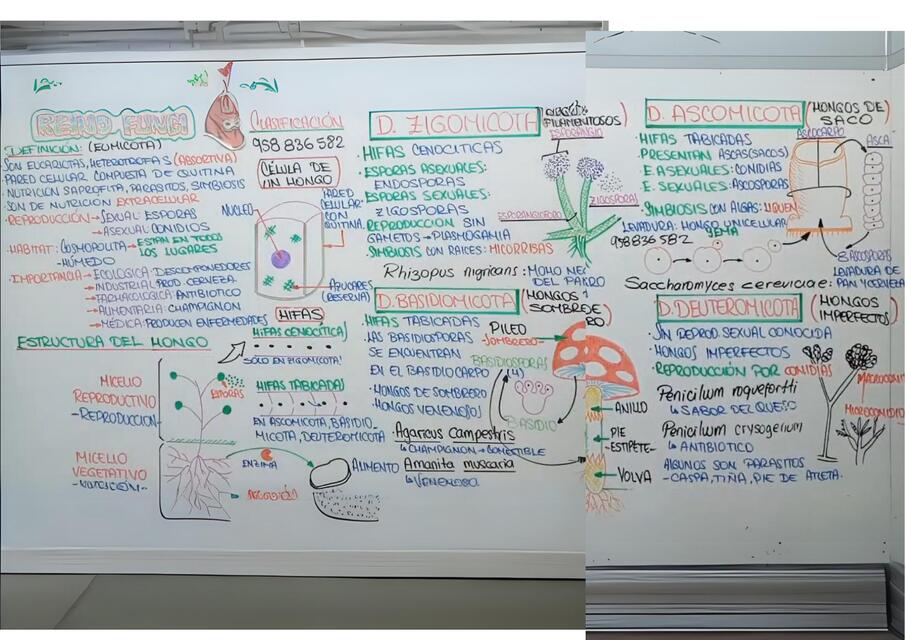 REINO FUNGI
DEFINICIÓN: (EUMICOTA)
SON EUCARIOTAS, HETEROTROFAS (ABSORTIVA)
PARED CELULAR COMPUESTA DE QUITINA
NUTRICIÓN SAPROFITA, PARASITOS, SIMBIOSIS
SON DE NUTRICION EXTRACELULAR
REPRODUCCIÓN → SEXUAL: ESPORAS
→ ASEXUAL: CONIDIOS
HABITAT: COSMOPOLITA → ESTAN EN TODOS LOS LUGARES
- HÚMEDO
IMPORTANCIA → ECOLOGICA: DESCOMPONEDORES
→ INDUSTRIAL: PROD. CERVEZA
→ FARMACOLOGICA: ANTIBIOTICO
→ ALIMENTARIA: CHAMPIGNON
→ MÉDICA: PRODUCEN ENFERMEDADES
ESTRUCTURA DEL HONGO
MICELIO
REPRODUCTIVO
- REPRODUCCION -
ESPORAS
MICELLO
VEGETATIVO
- NUTRICIÓN -
ENZIMA
ABSORCIÓN
ALIMENTO
CLASIFICACIÓN
958 836 582
CÉLULA DE
UN HONGO
NUCLEO
PARED
CELULAR
CON
QUITINA
AZUCARES
(RESERVA)
HIFAS
HIFAS CENOCÍTICA
SÓLO EN ZIGOMICOTA!
HIFAS TABICADAS
EN ASCOMICOTA, BASIDIO-
MICOTA, DEUTEROMICOTA
D. ZIGOMICOTA
FILAMENTOSOS)
HIFAS CENOCITICAS
ESPORAS ASEXUALES:
ENDOSPORAS
ESPORAS SEXUALES:
ZIGOSPORAS
REPRODUCCION SIN
GAMETOS → PLASMOGAMIA
SIMBIOSIS CON RAICES: MICORRIBAS
ESPORANGIO
ZIGOSPORAS
Rhizopus nigricans: MOHO NE
DEL PAN
D. BASIDIOMICOTA
(HONGOS
SOMBRERO
HIFAS TABICADAS
LAS BASIDIOSPORAS
SE ENCUENTRAN
EN EL BASIDIOCARPO
HONGOS DE SOMBRERO
HONGOS VENENOSOS
Agaricus Campestris
↳ CHAMPIGNON → COMESTIBLE
Amanita muscaria
↳ VENENOSO
PILEO
- SOMBRERO -
BASIDIOSPORAS
(4)
BASIDIO
ANILLO
PIE
- ESTIPETE -
VOLVA
D. ASCOMICOTA
(HONGOS DE
SACO)
HIFAS TABICADAS
PRESENTAN ASCAS (SACOS)
E. ASEXUALES: CONIDIAS
E. SEXUALES: ASCOSPORAS
SIMBIOSIS CON ALGAS: LIQUEN
LEVADURA: HONGO UNICELULAR
958836582
YEMA
ASCOCARPO
ASCA
ASCOSPORAS
Saccharomyces cereviciae: LEVADURA DE
PAN Y CERVEZA
D. DEUTEROMICOTA
(HONGOS
IMPERFECTOS)
SIN REPROD. SEXUAL CONOCIDA
HONGOS IMPERFECTOS
REPRODUCCIÓN POR CONIDIAS
Penicilum roquefortti
↳ SABOR DEL QUESO
Penicilum crysogenum
↳ ANTIBIOTICO
ALGUNOS SON PARASITOS
- CASPA, TIÑA, PIE DE ATLETA.
MACROCONIDI
MICROCONIDIO